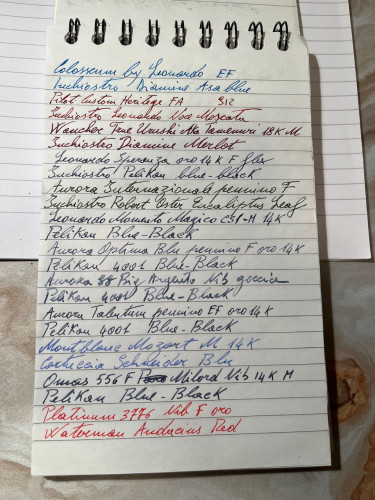 Colosseum by Leonardo EF
Inchiostro Diamine Asa blue
Pilot Custom Heritage FA 912
Inchiostro Leonardo Uva Moscata
Wancher True Urushi Aka Tamenuri 18K M
Inchiostro Diamine Merlot
Leonardo Speranza oro 14K F flex
Inchiostro Pelikan blue-black
Aurora Internazionale pennino F
Inchiostro Robert Oster Eucaliptus Leaf
Leonardo Momento Magico CSI-M 14K
Pelikan Blue-Black
Aurora Optima Blu pennino F oro 14K
Pelikan 4001 Blue-Black
Aurora 88 Big Argento Nib goccia
Pelikan 4001 Blue-Black
Aurora Talentum pennino EF oro 14K
Pelikan 4001 Blue-Black
Montblanc Mozart M 14K
Cartuccia Schneider Blu
Omas 556 F Milord Nib 14K M
Pelikan Blue-Black
Platinum 3776 Nib F oro
Waterman Audacius Red